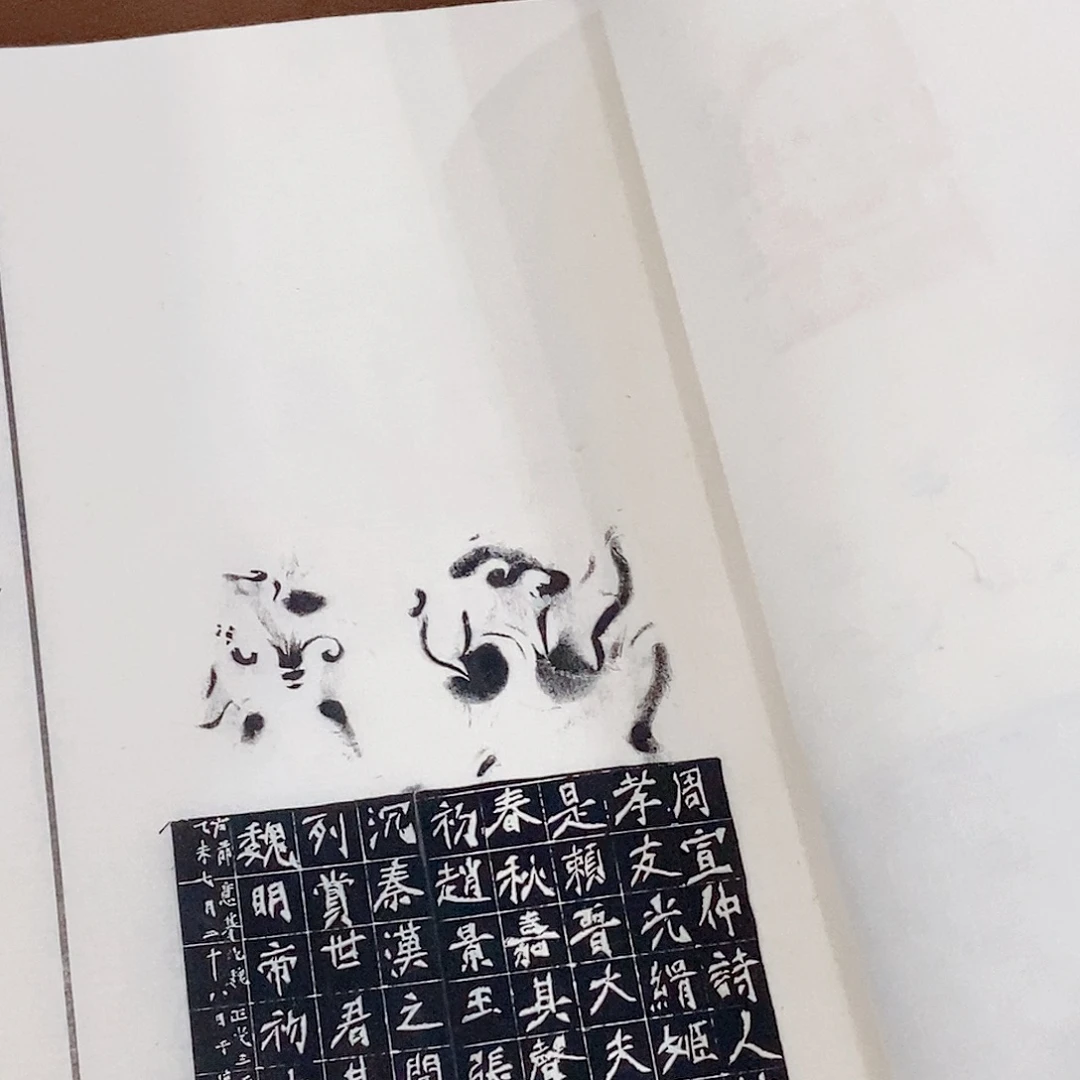 周宣仲詩人
孝友光緝姬
是賴晉大夫
春秋嘉其聲
初趙景王張
沉秦漢之間
列賞世君其
魏明帝初
魏正光三
丁未七月二十八日午